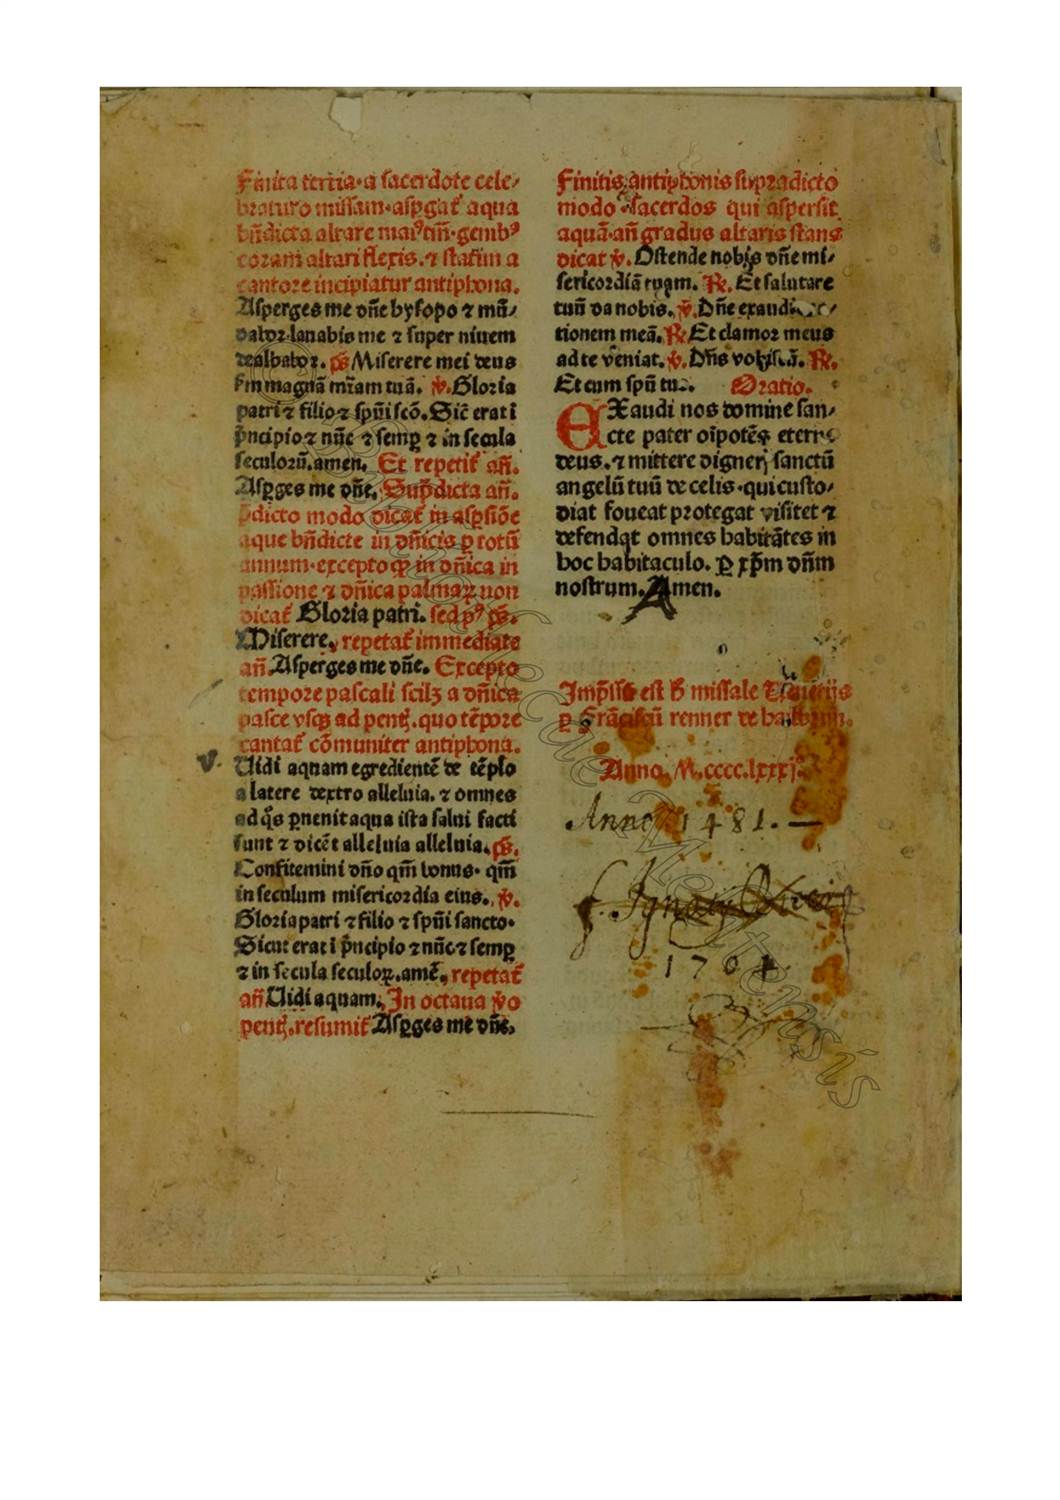 Finita tertia·a sacerdote cele⸗
braturo missam·asꝑgat᷑ aqua
bñdicta altare maiꝰ tm̃·genibꝰ
coram altari flexis.⁊ statim a
cantore incipiatur antiphona.
Asperges me dñe hysopo ⁊ mũ⸗
dabor·lauabis me ⁊ super niuem
dealbabor. ps̃ Miserere mei deus
ẜm magnã mĩam tuã. ℣. Gloria
patri ⁊ filio ⁊ spũi scõ. Sic̃ erat ĩ
p̃ncipio ⁊ nũc ⁊ semꝑ ⁊ in secula
seculorũ.amen. Et repetit᷑ añ.
Asꝑges me dñe. Sup̃dicta añ.
p̃dicto modo dicat᷑ in asꝑsiõe
aque bñdicte in dñicis ꝑ totũ
annum·excepto ꝙ in dñica in
passione ⁊ dñica palmaꝝ non
dicat᷑ Gloria patri. sed pꝰ ps̃.
Miserere. repetat᷑ immediate
añ. Asperges me dñe. Excepto
tempore pascali scilꝫ a dñica
pasce vsqꝫ ad pentħ. quo tẽpore
cantat᷑ cõmuniter antiphona.
V. Uidi aquam egredientẽ de tẽplo
a latere dextro alleluia. ⁊ omnes
ad q̃s ꝑuenit aqua ista salui facti
sunt ⁊ dicẽt alleluia alleluia. ps̃.
Confitemini dño qm̃ bonus· qm̃
in seculum misericordia eius. ℣.
Gloria patri ⁊ filio ⁊ spũi sancto·
Sicut erat ĩ p̃ncipio ⁊ nũc ⁊ semꝑ
⁊ in secula seculoꝝ.amẽ. repetat᷑
añ Uidi aquam. In octaua ṽo
pentħ. resumit᷑ Asꝑges me dñe.
Finitis antiphonis supradicto
modo sacerdos qui aspersit
aquã·añ gradus altaris stans
dicat ℣. Ostende nobis dñe mi⸗
sericordiã tuam. ℟. Et salutare
tuũ da nobis. ℣. Dñe exaudi
tionem meã. ℟ Et clamor meus
ad te veniat. ℣. Dñs vobiscũ. ℟.
Et cum spũ tuo. Oratio.
EXaudi nos domine san⸗
cte pater oĩpotẽs eterne
deus. ⁊ mittere digneris sanctũ
angelũ tuũ de celis·qui custo⸗
diat foueat protegat visitet ⁊
defendat omnes habitãtes in
hoc habitaculo. ꝑ xp̃m dñm
nostrum. Amen.
Imp̃ssũ est h̃ missale Uenetijs
ꝑ Frãciscũ renner de hailbrun.
Anno. M.cccc.lxxxj.
Anno 1481. —
f. Ignatij
1701
© Bibliothecae Metensis